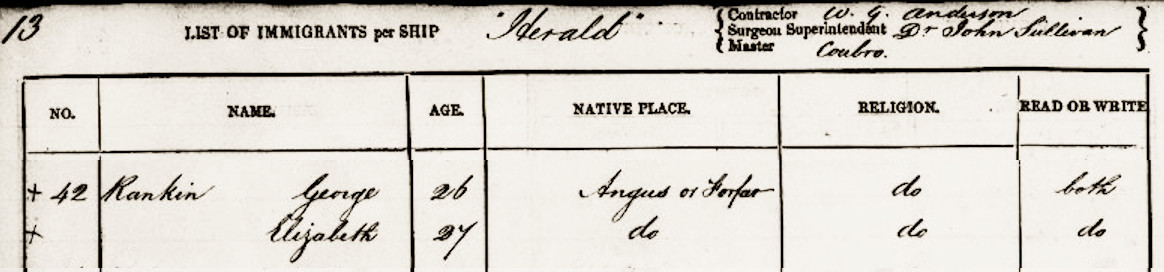 13 LIST OF IMMIGRANTS per SHIP "Herald" Contractor W. G. Anderson
Surgeon Superintendent Dr John Sullivan
Master Coubro.
NO. NAME. AGE. NATIVE PLACE. RELIGION. READ OR WRITE
+ 42 Rankin George 26 Angus or Forfar do both
+ Elizabeth 27 do do do